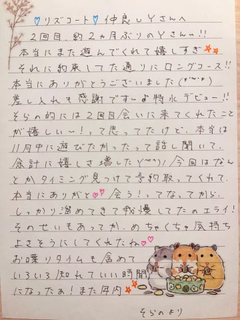 ♡リズコート♡ 仲良しYさんへ
2回目、約2か月ぶりのYさんー!!
本当にまた遊んでくれて嬉しすぎ
それに約束してた通りにロングコース!!
本当にありがとうございました(*´▽`*)
差し入れも感謝ですー♪特水デビュー!!
そらの的には2回目会いに来てくれたこと
が嬉しいー!って思ってたけど、本当は
11月中に遊びたかったって話し聞いて、
余計に嬉しさ爆した(*´▽`*)/今回はなん
とかタイミング見つけて予約取ってくれて
本当にありがと♡会う!ってなってから、
しっかり溜めてきて我慢してたのエライ!
そのせいもあってか、めちゃくちゃ気持ち
よさそうにしてくれたね♡
お喋りタイムも含めて
いろいろ知れていい時間
になったぁ!また年内
そらのより